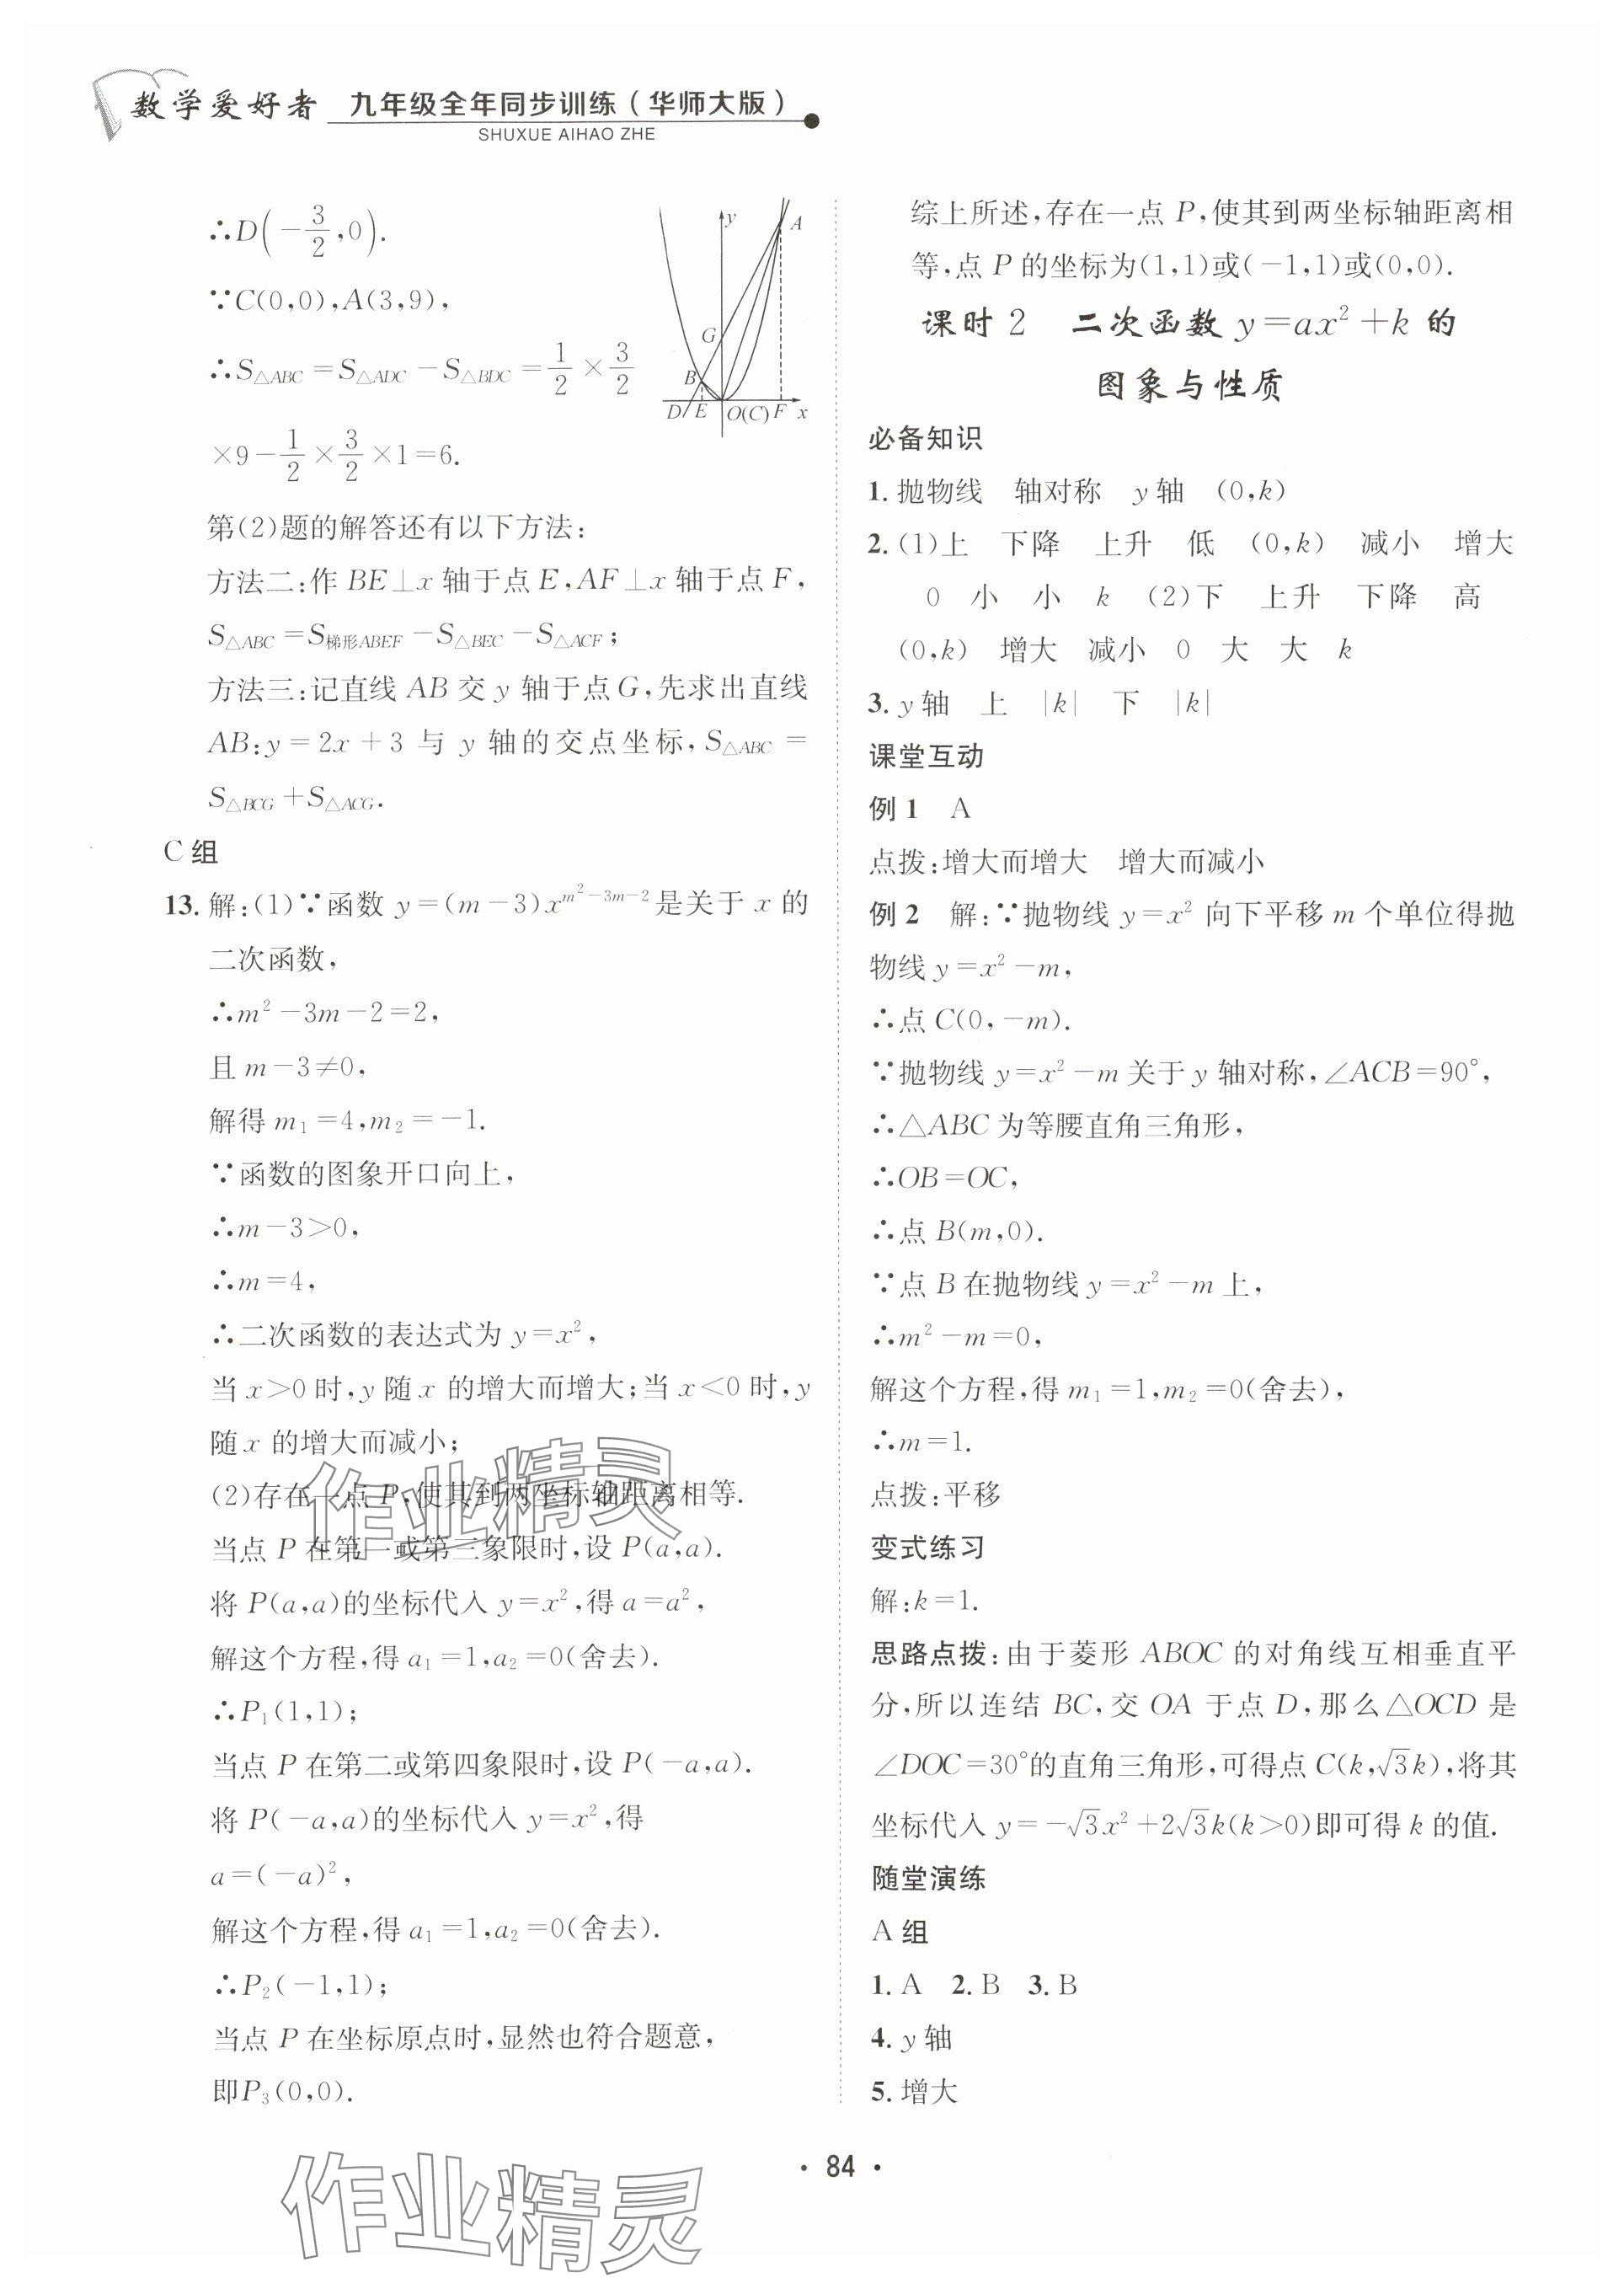 数学爱好者 九年级全年同步训练(华师大版)
SHUXUE AIHAO ZHE
∴D(-3/2,0).
∵C(0,0),A(3,9),
∴S△ABC=S△ADC-S△BDC=1/2×3/2
×9-1/2×3/2×1=6.
y
A
G
B
D E O(C) F x
第(2)题的解答还有以下方法:
方法二:作BE⊥x轴于点E,AF⊥x轴于点F,
S△ABC=S梯形ABEF-S△BEC-S△ACF;
方法三:记直线AB交y轴于点G,先求出直线
AB:y=2x+3与y轴的交点坐标,S△ABC=
S△BCG+S△ACG.
C组
13.解:(1)∵函数y=(m-3)x^(m²-3m-2)是关于x的
二次函数,
∴m²-3m-2=2,
且m-3≠0,
解得m₁=4,m₂=-1.
∵函数的图象开口向上,
∴m-3>0,
∴m=4,
∴二次函数的表达式为y=x²,
当x>0时,y随x的增大而增大;当x<0时,y
随x的增大而减小;
(2)存在一点P,使其到两坐标轴距离相等.
当点P在第一或第三象限时,设P(a,a).
将P(a,a)的坐标代入y=x²,得a=a²,
解这个方程,得a₁=1,a₂=0(舍去).
∴P₁(1,1);
当点P在第二或第四象限时,设P(-a,a).
将P(-a,a)的坐标代入y=x²,得
a=(-a)²,
解这个方程,得a₁=1,a₂=0(舍去).
∴P₂(-1,1);
当点P在坐标原点时,显然也符合题意,
即P₃(0,0).
综上所述,存在一点P,使其到两坐标轴距离相
等,点P的坐标为(1,1)或(-1,1)或(0,0).
课时2 二次函数y=ax²+k的
图象与性质
必备知识
1.抛物线 轴对称 y轴 (0,k)
2.(1)上 下降 上升 低 (0,k) 减小 增大
0 小 小 k (2)下 上升 下降 高
(0,k) 增大 减小 0 大 大 k
3.y轴 上 |k| 下 |k|
课堂互动
例1 A
点拨:增大而增大 增大而减小
例2 解:∵抛物线y=x²向下平移m个单位得抛
物线y=x²-m,
∴点C(0,-m).
∵抛物线y=x²-m关于y轴对称,∠ACB=90°,
∴△ABC为等腰直角三角形,
∴OB=OC,
∴点B(m,0).
∵点B在抛物线y=x²-m上,
∴m²-m=0,
解这个方程,得m₁=1,m₂=0(舍去),
∴m=1.
点拨:平移
变式练习
解:k=1.
思路点拨:由于菱形ABOC的对角线互相垂直平
分,所以连结BC,交OA于点D,那么△OCD是
∠DOC=30°的直角三角形,可得点C(k,√3k),将其
坐标代入y=-√3x²+2√3k(k>0)即可得k的值.
随堂演练
A组
1.A 2.B 3.B
4.y轴
5.增大
· 84 ·
作业精灵
作业精灵